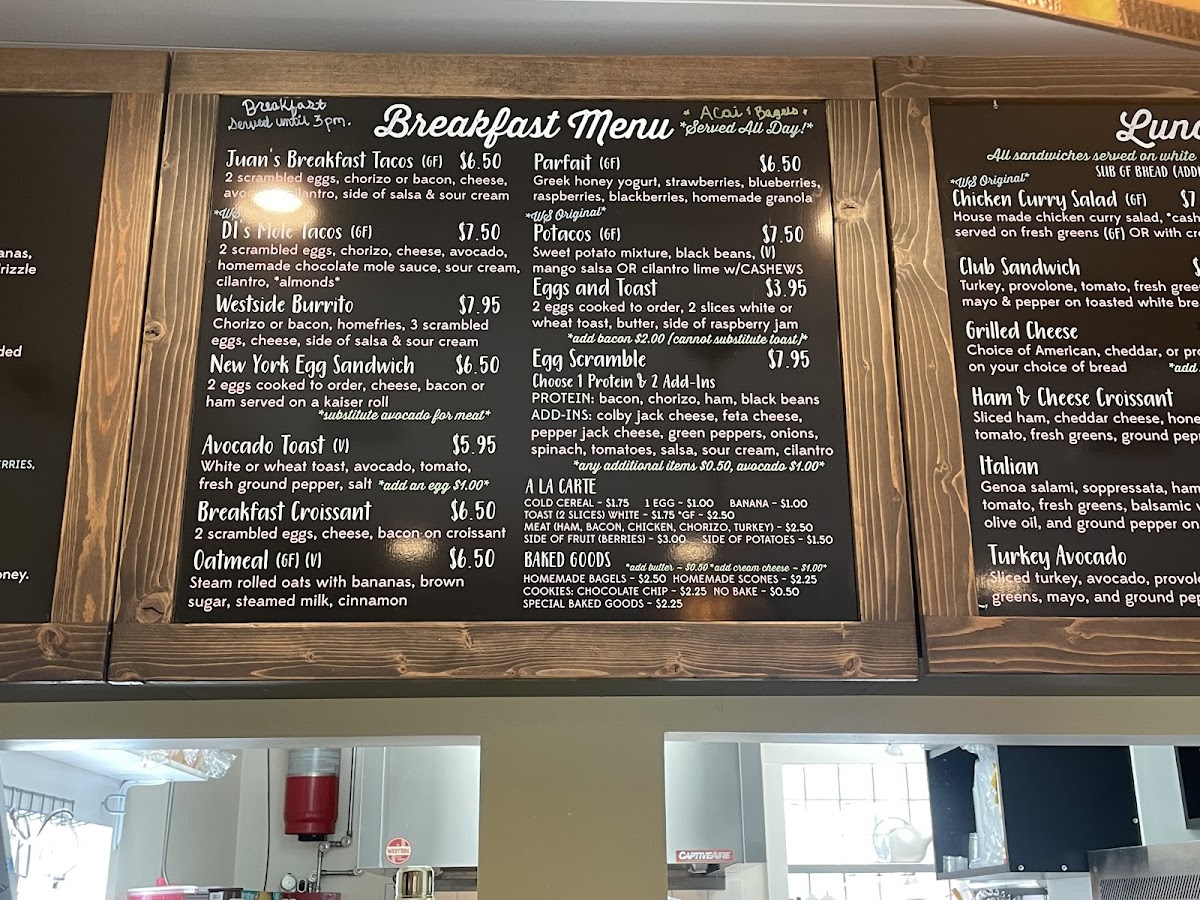 anas,
rizzle
ded
ERRIES,
oney.
Breakfast
Served until 3pm.
Breakfast Menu
* Acai & Bagels *
*Served All Day!*
Juan's Breakfast Tacos (GF) $6.50
2 scrambled eggs, chorizo or bacon, cheese,
avocado, cilantro, side of salsa & sour cream
DI's Mole Tacos (GF) $7.50
2 scrambled eggs, chorizo, cheese, avocado,
homemade chocolate mole sauce, sour cream,
cilantro, *almonds*
Westside Burrito $7.95
Chorizo or bacon, homefries, 3 scrambled
eggs, cheese, side of salsa & sour cream
New York Egg Sandwich $6.50
2 eggs cooked to order, cheese, bacon or
ham served on a kaiser roll
*substitute avocado for meat*
Avocado Toast (V) $5.95
White or wheat toast, avocado, tomato,
fresh ground pepper, salt *add an egg $1.00*
Breakfast Croissant $6.50
2 scrambled eggs, cheese, bacon on croissant
Oatmeal (GF) (V) $6.50
Steam rolled oats with bananas, brown
sugar, steamed milk, cinnamon
Parfait (GF) $6.50
Greek honey yogurt, strawberries, blueberries,
raspberries, blackberries, homemade granola
*WS Original*
Potacos (GF) $7.50
Sweet potato mixture, black beans, (V)
mango salsa OR cilantro lime w/CASHEWS
Eggs and Toast $3.95
2 eggs cooked to order, 2 slices white or
wheat toast, butter, side of raspberry jam
*add bacon $2.00 (cannot substitute toast)*
Egg Scramble $7.95
Choose 1 Protein & 2 Add-Ins
PROTEIN: bacon, chorizo, ham, black beans
ADD-INS: colby jack cheese, feta cheese,
pepper jack cheese, green peppers, onions,
spinach, tomatoes, salsa, sour cream, cilantro
*any additional items $0.50, avocado $1.00*
A LA CARTE
COLD CEREAL - $1.75 1 EGG - $1.00 BANANA - $1.00
TOAST (2 SLICES) WHITE - $1.75 *GF - $2.50
MEAT (HAM, BACON, CHICKEN, CHORIZO, TURKEY) - $2.50
SIDE OF FRUIT (BERRIES) - $3.00 SIDE OF POTATOES - $1.50
BAKED GOODS *add butter - $0.50 *add cream cheese - $1.00*
HOMEMADE BAGELS - $2.50 HOMEMADE SCONES - $2.25
COOKIES: CHOCOLATE CHIP - $2.25 NO BAKE - $0.50
SPECIAL BAKED GOODS - $2.25
Lunc
All sandwiches served on white
SUB GF BREAD (ADD
*WS Original*
Chicken Curry Salad (GF) $7
House made chicken curry salad, *cash
served on fresh greens (GF) OR with cr
Club Sandwich $
Turkey, provolone, tomato, fresh gree
mayo & pepper on toasted white bre
Grilled Cheese
Choice of American, cheddar, or pro
on your choice of bread *add
Ham & Cheese Croissant
Sliced ham, cheddar cheese, hone
tomato, fresh greens, ground pep
Italian
Genoa salami, soppressata, ham
tomato, fresh greens, balsamic v
olive oil, and ground pepper on
Turkey Avocado
Sliced turkey, avocado, provol
greens, mayo, and ground pe
WESTSIDE
CAPTIVEAIRE